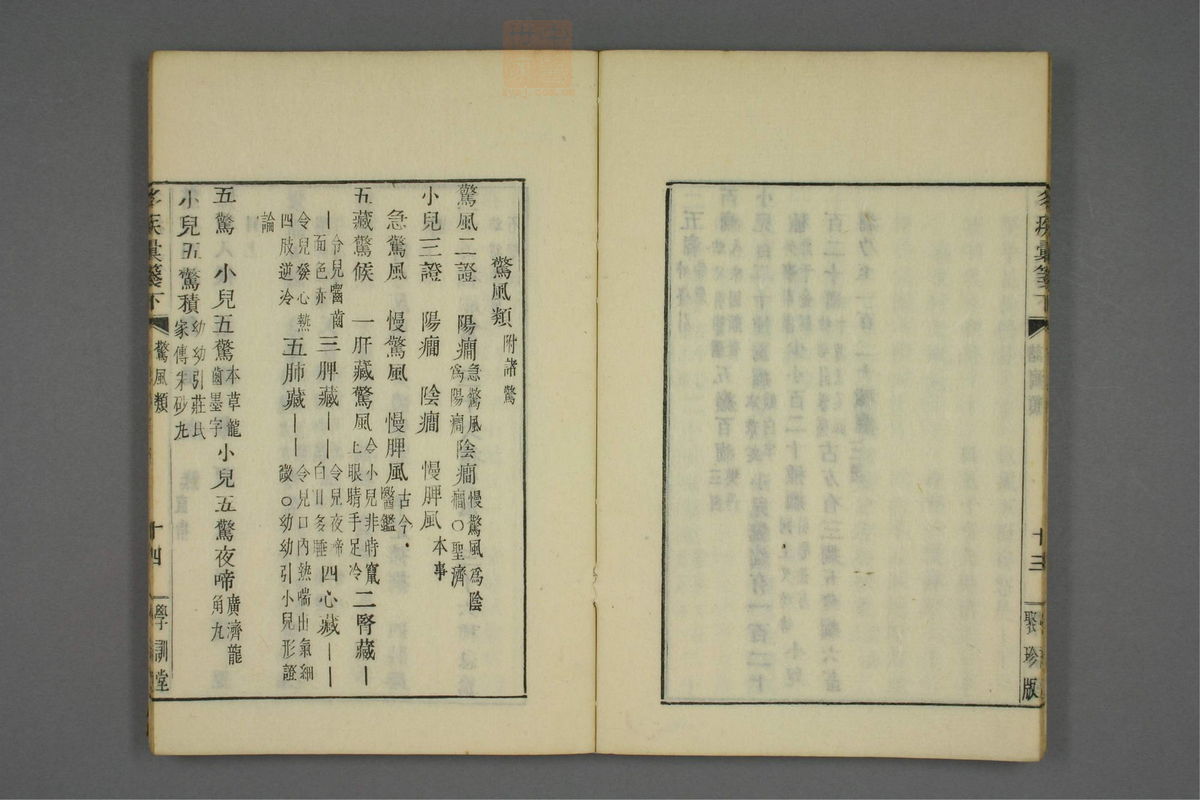 驚風類 附諸驚
驚風二證 陽癇 急驚風爲陽癇 陰癇 慢驚風爲陰癇○聖濟
小兒三證 陽癇 陰癇 慢脾風 本事
急驚風 慢驚風 慢脾風 古今醫鑑
五藏驚候 一肝藏驚風 令小兒非時竄上眼睛手足冷 二腎藏｜
｜令兒嚙齒面色赤 三脾藏｜｜ 令兒夜啼白日多睡 四心藏｜｜
令兒發心熱四肢逆冷 五肺藏｜｜ 令兒口內熱喘出氣細微○幼幼引小兒形證
論
五驚人 小兒五驚 本草龍齒墨字 小兒五驚夜啼 廣濟龍角丸
小兒五驚積 幼幼引莊氏家傳朱砂丸
疾彙箋下 驚風類 十四 學訓堂
疾彙箋下 類 十三 聚珍版